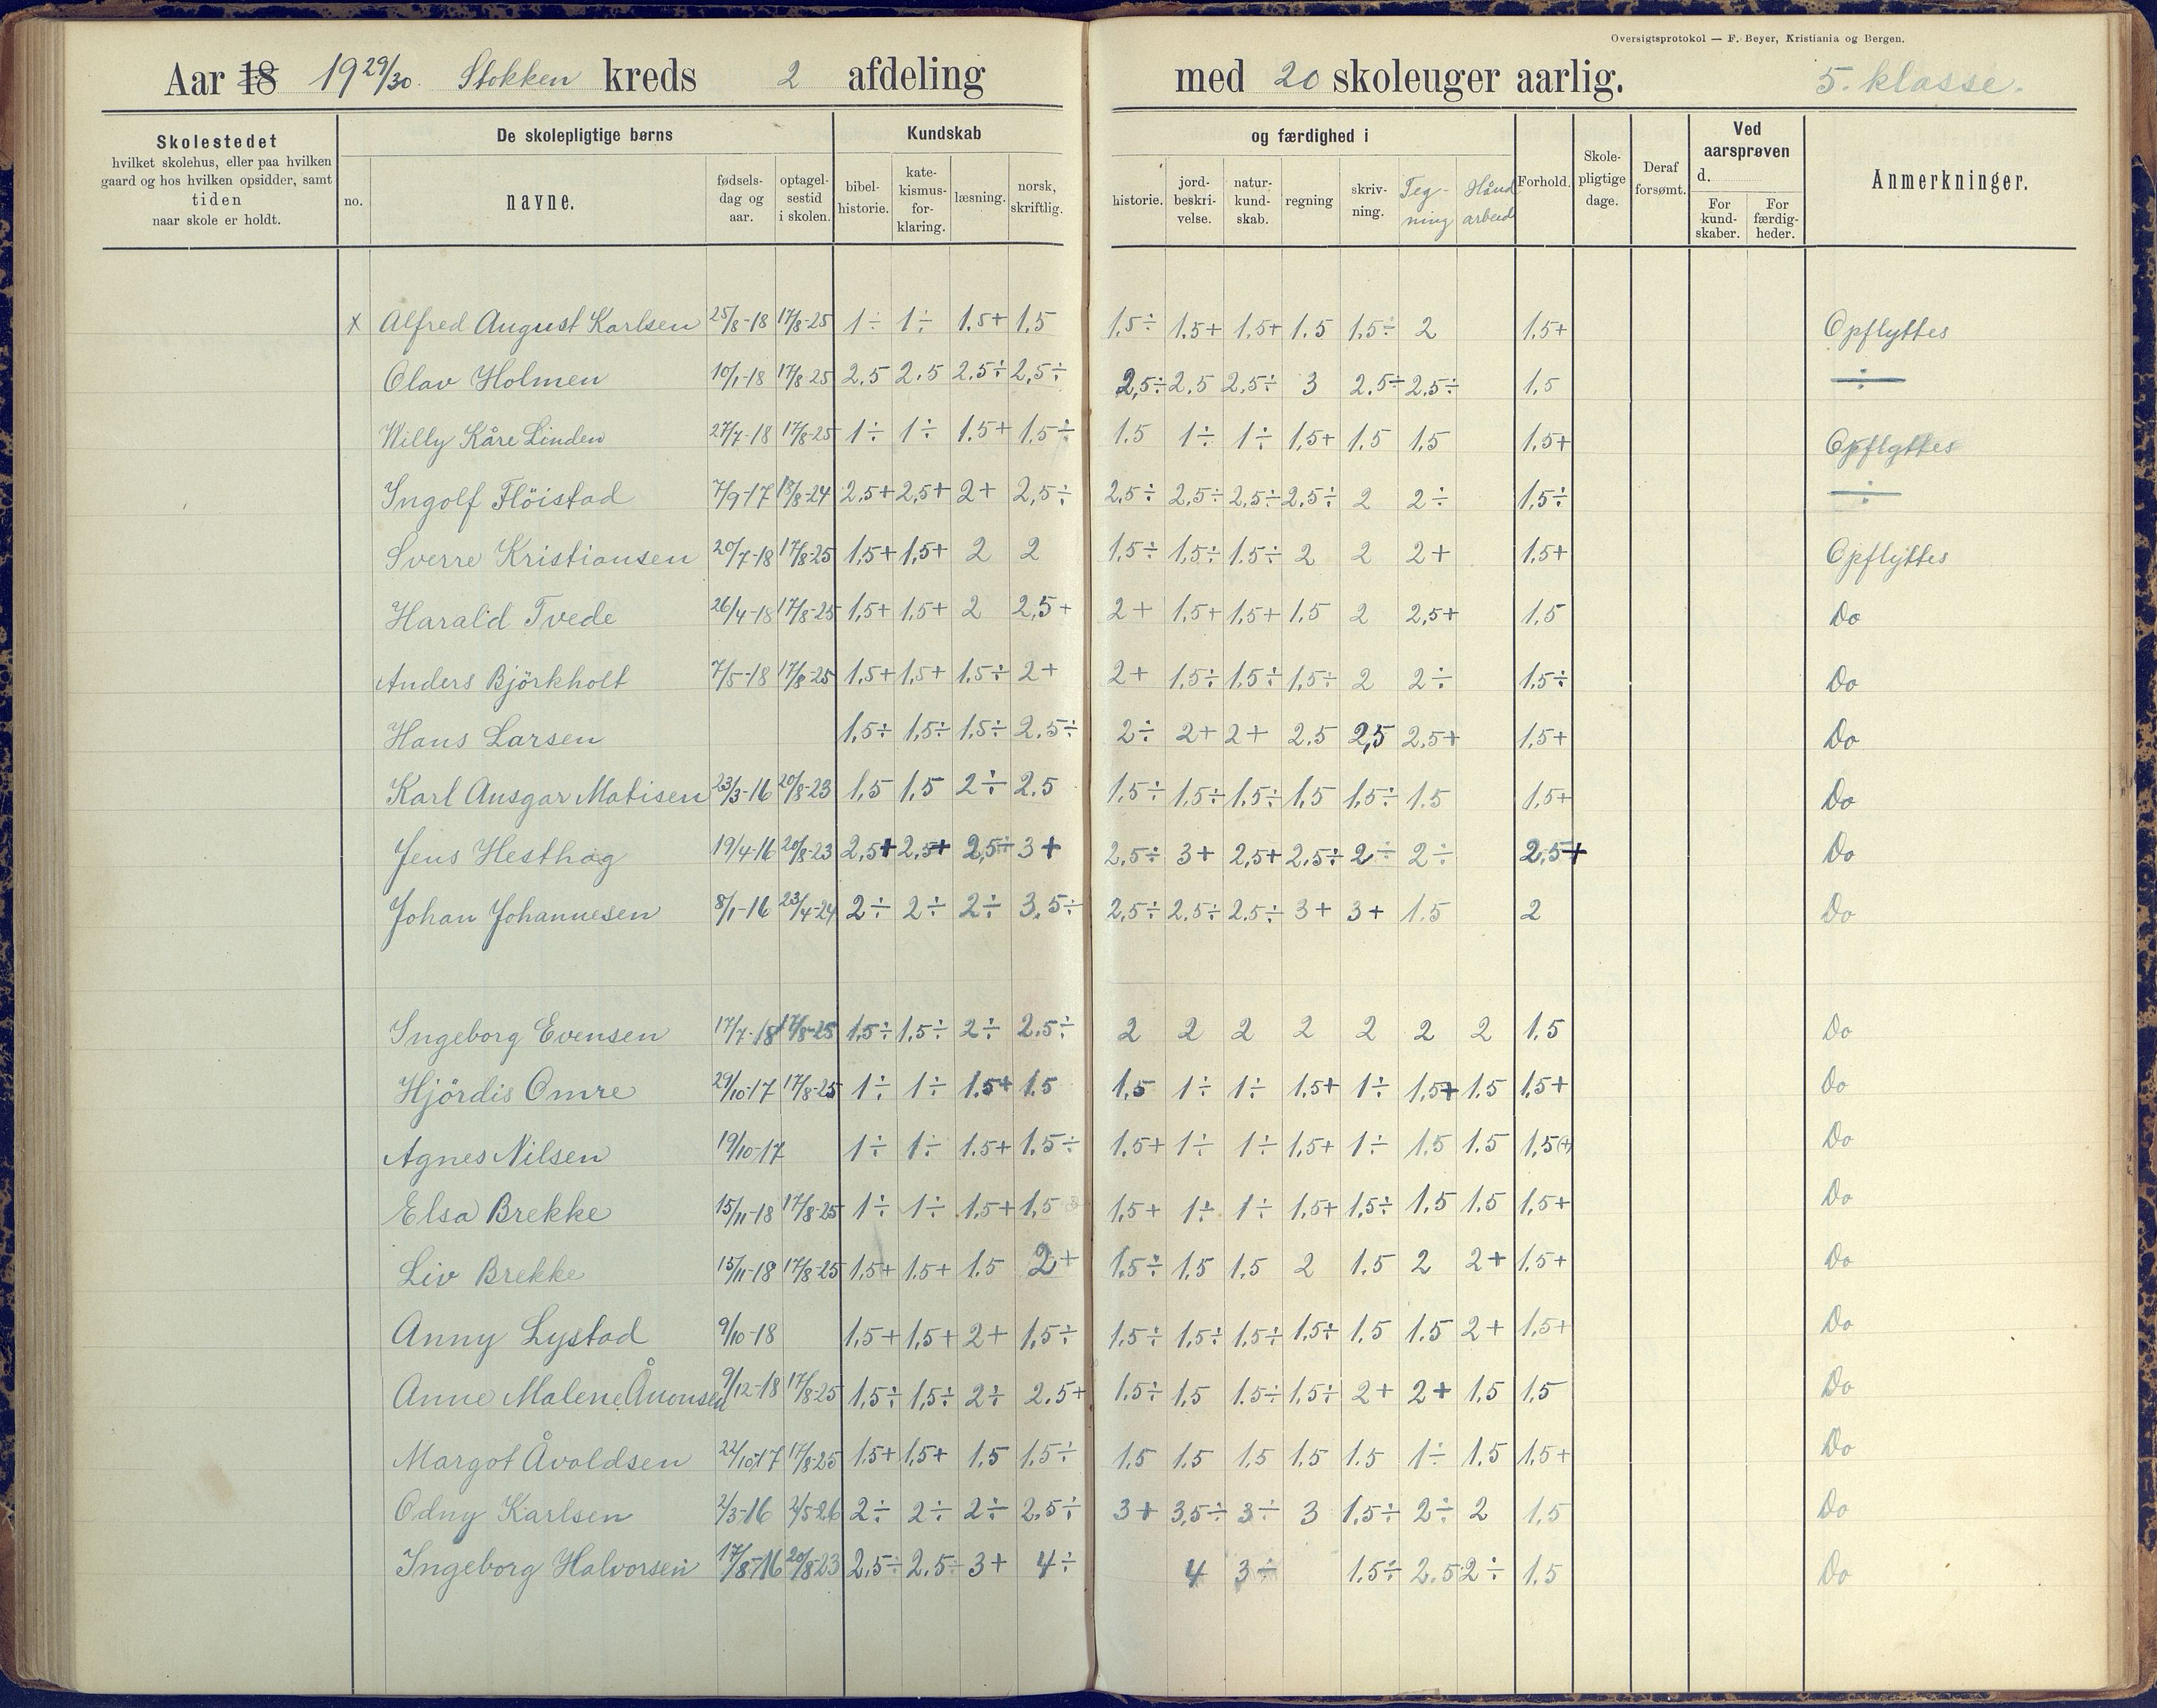 Oversigtsprotokol — F. Beyer, Kristiania og Bergen.
Aar 18 1929/30. Stokken kreds 2 afdeling med 20 skoleuger aarlig. 5. klasse.
Skolestedet hvilket skolehus, eller paa hvilken gaard og hos hvilken opsidder, samt tiden naar skole er holdt.
De skolepligtige børns
Kundskab og færdighed i
no. navne. fødsels-dag og aar. optagel-sestid i skolen. bibel-historie. kate-kismus-for-klaring. læsning. norsk, skriftlig. historie. jord-beskri-velse. natur-kund-skab. regning skriv-ning. Teg-ning Hånd arbeid Forhold. Skole-pligtige dage. Deraf forsømt. Ved aarsprøven d. For kund-skaber. For færdig-heder. Anmerkninger.
x Alfred August Karlsen 25/8-18 17/8-25 1÷ 1÷ 1.5+ 1,5 1,5÷ 1.5+ 1,5+ 1.5 1,5÷ 2 1,5+ Opflyttes
Olav Holmen 10/1-18 17/8-25 2,5 2,5 2,5÷ 2,5÷ 2,5÷ 2,5 2,5÷ 3 2.5÷ 2,5÷ 1,5 ÷
Willy Kåre Linden 27/7-18 17/8-25 1÷ 1÷ 1.5+ 1,5÷ 1.5 1÷ 1÷ 1,5+ 1.5 1,5 1,5+ Opflyttes
Ingolf Flöistad 7/9-17 18/8-24 2,5+ 2,5+ 2+ 2,5÷ 2,5÷ 2,5÷ 2,5÷ 2,5÷ 2 2÷ 1,5÷ ÷
Sverre Kristiansen 20/7-18 17/8-25 1,5+ 1,5+ 2 2 1,5÷ 1,5÷ 1.5÷ 2 2 2+ 1.5+ Opflyttes
Harald Tvede 26/4-18 17/8-25 1,5+ 1,5+ 2 2,5+ 2+ 1,5+ 1,5+ 1,5 2 2,5+ 1.5 Do
Anders Björkholt 7/5-18 17/8-25 1,5+ 1,5+ 1,5÷ 2+ 2+ 1,5÷ 1,5÷ 1,5÷ 2 2÷ 1,5÷ Do
Hans Larsen 1,5÷ 1,5÷ 1,5÷ 2.5÷ 2÷ 2+ 2+ 2.5 2,5 2,5+ 1,5+ Do
Karl Ansgar Matisen 23/3-16 20/8-23 1,5 1,5 2÷ 2.5 1,5÷ 1,5÷ 1,5÷ 1,5 1,5÷ 1.5 1,5+ Do
Jens Hesthag 19/4-16 20/8-23 2,5+ 2,5+ 2,5÷ 3+ 2,5÷ 3+ 2,5+ 2,5÷ 2÷ 2÷ 2,5+ Do
Johan Johannesen 8/1-16 23/4-24 2÷ 2÷ 2÷ 3.5÷ 2,5÷ 2.5÷ 2,5÷ 3+ 3+ 1.5 2 Do
Ingeborg Evensen 17/7-18 17/8-25 1,5÷ 1,5÷ 2÷ 2.5÷ 2 2 2 2 2 2 2 1.5 Do
Hjördis Omre 29/10-17 17/8-25 1÷ 1÷ 1.5+ 1.5 1,5 1÷ 1÷ 1,5+ 1÷ 1,5+ 1.5 1,5+ Do
Agnes Nilsen 19/10-17 1÷ 1÷ 1.5+ 1.5÷ 1.5+ 1÷ 1÷ 1,5+ 1÷ 1.5 1.5 1,5(+) Do
Elsa Brekke 15/11-18 17/8-25 1÷ 1÷ 1.5+ 1,5 1,5+ 1÷ 1÷ 1,5+ 1,5÷ 1.5 1.5 1,5+ Do
Liv Brekke 15/11-18 17/8-25 1,5+ 1.5+ 1.5 2+ 1.5÷ 1,5 1,5 2 1.5 2 2+ 1,5+ Do
Anny Lystad 9/10-18 1,5+ 1,5+ 2+ 1,5÷ 1,5÷ 1,5÷ 1,5÷ 1,5÷ 1.5 1.5 2+ 1,5+ Do
Anne Malene Ånonsen 9/12-18 17/8-25 1,5÷ 1,5÷ 2÷ 2.5+ 1.5÷ 1,5 1.5÷ 1,5÷ 2+ 2+ 1.5 1,5 Do
Margot Åvoldsen 22/10-17 17/8-25 1,5+ 1,5+ 1.5 1.5÷ 1,5 1,5 1,5 1,5 1.5 1÷ 1.5 1,5+ Do
Odny Karlsen 2/3-16 2/5-26 2÷ 2÷ 2÷ 2,5÷ 3+ 3,5÷ 3÷ 3 1,5÷ 2÷ 2 1,5 Do
Ingeborg Halvorsen 17/8-16 20/8-23 2,5÷ 2.5÷ 3+ 4÷ 4 3÷ 1.5÷ 2.5 2÷ 1,5 Do